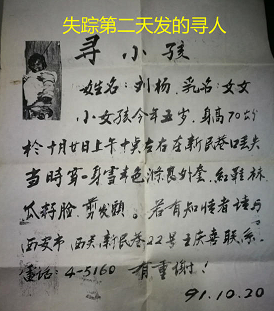 失踪第二天发的寻人
寻小孩
姓名：刘杨．乳名：女女
小女孩今年五岁．身高70公分
於十月廿日上午十点左右在新民巷口丢失
当時穿一身雪青色涤良外套．红鞋袜
瓜籽脸．剪发頭。若有知情者请与
西安市西关新民巷22号王庆喜联系．
电话：4-5160 有重谢！
91.10.20